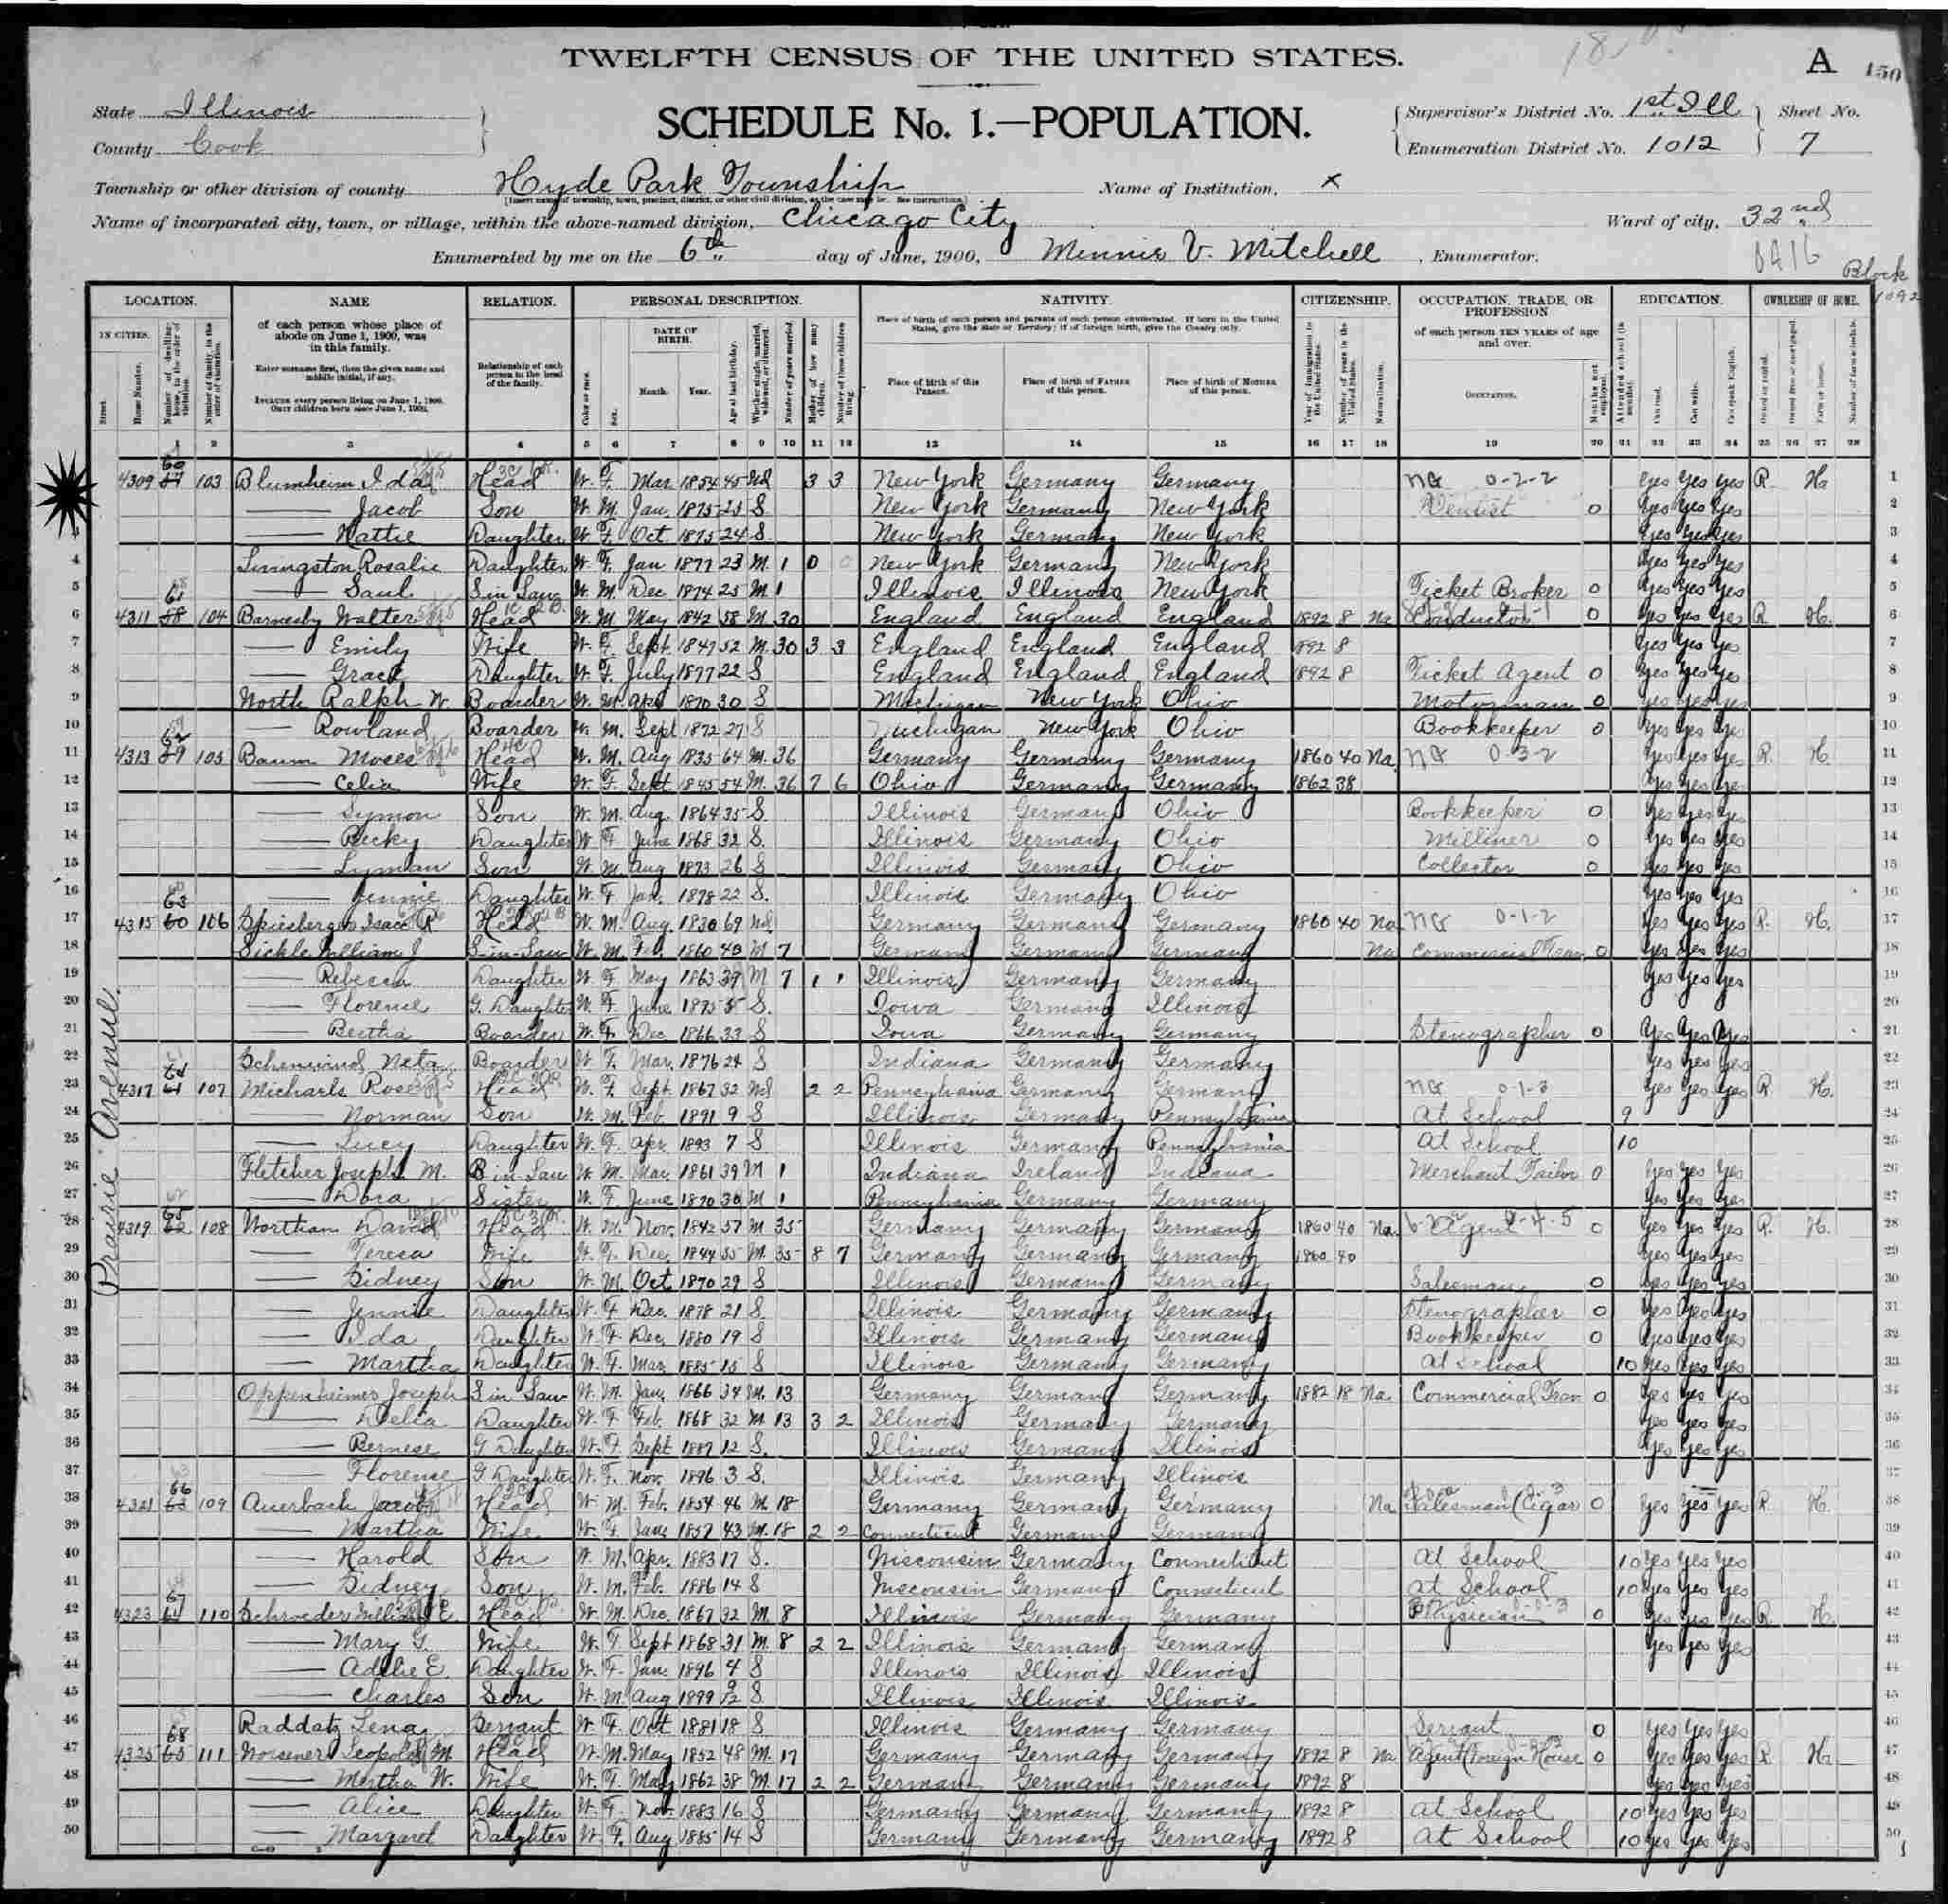 TWELFTH CENSUS OF THE UNITED STATES.
A
150
State Illinois
County Cook
SCHEDULE No. 1.—POPULATION.
Supervisor's District No. 1st Ill
Enumeration District No. 1012
Sheet No.
7
Township or other division of county Hyde Park Township
Name of Institution, x
Name of incorporated city, town, or village, within the above-named division, Chicago City
Ward of city, 32nd
Enumerated by me on the 6th day of June, 1900, Minnie V. Mitchell, Enumerator.
Block 1092
LOCATION. NAME RELATION. PERSONAL DESCRIPTION. NATIVITY. CITIZENSHIP. OCCUPATION, TRADE, OR PROFESSION EDUCATION. OWNERSHIP OF HOME.
IN CITIES.
of each person whose place of abode on June 1, 1900, was in this family.
Enter surname first, then the given name and middle initial, if any.
INCLUDE every person living on June 1, 1900. OMIT children born since June 1, 1900.
Relationship of each person to the head of the family.
DATE OF BIRTH.
Month. Year.
Place of birth of each person and parents of each person enumerated. If born in the United States, give the State or Territory; if of foreign birth, give the Country only.
Place of birth of this PERSON. Place of birth of FATHER of this person. Place of birth of MOTHER of this person.
of each person TEN YEARS of age and over.
OCCUPATION.
1 2 3 4 5 6 7 8 9 10 11 12 13 14 15 16 17 18 19 20 21 22 23 24 25 26 27 28
Prairie Avenue.
4309 103 Blumheim Ida Head W. F. Mar 1854 45 Wd 3 3 New York Germany Germany Yes Yes Yes R H 1
Jacob Son W. M. Jan. 1875 25 S New York Germany New York Dentist 0 Yes Yes Yes 2
3 Hattie Daughter W. F. Oct 1875 24 S New York Germany New York Yes Yes Yes 3
4 Livingston Rosalie Daughter W. F. Jan 1877 23 M. 1 0 New York Germany New York Yes Yes Yes 4
5 Saul S in Law W. M. Dec 1874 25 M 1 Illinois Illinois New York Ticket Broker 0 Yes Yes Yes 5
6 4311 104 Barnesby Walter Head W. M. May 1842 58 M. 30 England England England 1892 8 Na Conductor 0 Yes Yes Yes R. H. 6
7 Emily Wife W. F. Sept. 1847 52 M. 30 3 3 England England England 1892 8 Yes Yes Yes 7
8 Grace Daughter W. F. July 1877 22 S England England England 1892 8 Ticket Agent 0 Yes Yes Yes 8
9 North Ralph W. Boarder W. M. Apr 1870 30 S Michigan New York Ohio Motorman 0 Yes Yes Yes 9
10 Rowland Boarder W. M. Sept 1872 27 S Michigan New York Ohio Bookkeeper 0 Yes Yes Yes 10
11 4313 105 Baum Moses Head W. M. Aug 1835 64 M. 36 Germany Germany Germany 1860 40 Na. Yes Yes Yes R. H. 11
12 Celia Wife W. F. Sept 1845 54 M. 36 7 6 Ohio Germany Germany 1862 38 Yes Yes Yes 12
13 Symon Son W. M. Aug. 1864 35 S Illinois Germany Ohio Bookkeeper 0 Yes Yes Yes 13
14 Becky Daughter W F June 1868 32 S. Illinois Germany Ohio Milliner 0 Yes Yes Yes 14
15 Lyman Son W. M. Aug 1873 26 S Illinois Germany Ohio Collector 0 Yes Yes Yes 15
16 Jennie Daughter W. F Jan. 1878 22 S. Illinois Germany Ohio Yes Yes Yes 16
17 4315 106 Spiesberger Isaac R Head W. M. Aug. 1830 69 Wd. Germany Germany Germany 1860 40 Na Yes Yes Yes R. H. 17
18 Sickle William J S-in-Law W. M. Feb. 1860 40 M 7 Germany Germany Germany Na Commercial Trav. 0 Yes Yes Yes 18
19 Rebecca Daughter W. F May 1863 M 7 1 1 Illinois Germany Germany Yes Yes Yes 19
20 Florence G. Daughter W. F June 1895 5 S. Iowa Germany Illinois 20
21 Bertha Boarder W. F. Dec 1866 33 S Iowa Germany Germany Stenographer 0 Yes Yes Yes 21
22 Neta Boarder W F. Mar. 1876 24 S Indiana Germany Germany Yes Yes Yes 22
23 4317 107 Michaels Rose Head W. F. Sept. 1867 32 Wd 2 2 Pennsylvania Germany Germany Yes Yes Yes R H. 23
24 Norman Son W. M. Feb. 1891 9 S Illinois Germany Pennsylvania At School 9 24
25 Lucy Daughter W. F. Apr. 1893 7 S Illinois Germany Pennsylvania At School 10 25
26 Fletcher Joseph M. B in Law W. M. Mar. 1861 39 M 1 Indiana Ireland Indiana Merchant Tailor 0 Yes Yes Yes 26
27 Dora Sister W. F June 1870 30 M 1 Pennsylvania Germany Germany Yes Yes Yes 27
28 4319 108 Wortham David Head W. M. Nov. 1842 57 M 35 Germany Germany Germany 1860 40 Na. Agent 0 Yes Yes Yes R. H. 28
29 Teresa Wife W. F. Dec. 1844 55 M. 35 8 7 Germany Germany Germany 1860 40 Yes Yes Yes 29
30 Sidney Son W. M. Oct 1870 29 S Illinois Germany Germany Salesman 0 Yes Yes Yes 30
31 Jennie Daughter W. F. Dec. 1878 21 S Illinois Germany Germany Stenographer 0 Yes Yes Yes 31
32 Ida Daughter W. F. Dec. 1880 19 S Illinois Germany Germany Bookkeeper 0 Yes Yes Yes 32
33 Martha Daughter W. F. Mar 1885 15 S Illinois Germany Germany At School 10 Yes Yes Yes 33
34 Oppenheimer Joseph S in Law W. M. Jan. 1866 34 M. 13 Germany Germany Germany 1882 18 Na. Commercial Trav 0 Yes Yes Yes 34
35 Delia Daughter W. F Feb. 1868 32 M. 13 3 2 Illinois Germany Germany Yes Yes Yes 35
36 Bernese G Daughter W. F. Sept 1887 12 S. Illinois Germany Illinois Yes Yes Yes 36
37 Florence G. Daughter W. F. Nov. 1896 3 S. Illinois Germany Illinois 37
38 4321 109 Auerbach Jacob Head W. M. Feb. 1854 46 M. 18 Germany Germany Germany Na Salesman (Cigar 0 Yes Yes Yes R. H. 38
39 Martha Wife W. F. June 1857 43 M. 18 2 2 Connecticut Germany Germany 39
40 Harold Son W. M. Apr. 1883 17 S. Wisconsin Germany Connecticut At School 10 Yes Yes Yes 40
41 Sidney Son W. M. Feb. 1886 14 S Wisconsin Germany Connecticut At School 10 Yes Yes Yes 41
42 4323 110 Schroeder William E. Head W. M. Dec. 1867 32 M. 8 Illinois Germany Germany Physician 0 Yes Yes Yes R H. 42
43 Mary G. Wife W. F. Sept 1868 31 M. 8 2 2 Illinois Germany Germany Yes Yes Yes 43
44 Adelie E. Daughter W. F. Jan. 1896 4 S Illinois Illinois Illinois 44
45 Charles Son W. M. Aug 1899 9/12 S. Illinois Illinois Illinois 45
46 Raddatz Lena Servant W. F. Oct 1881 18 S Illinois Germany Germany Servant 0 Yes Yes Yes 46
47 4325 111 Leopold M Head W. M. May 1852 48 M. 17 Germany Germany Germany 1892 8 Na Agent (Foreign House 0 Yes Yes Yes R. H. 47
48 Martha W. Wife W. F. May 1862 38 M. 17 2 2 Germany Germany Germany 1892 8 Yes Yes Yes 48
49 Alice Daughter W. F. Nov. 1883 16 S Germany Germany Germany 1892 8 At School 10 Yes Yes Yes 49
50 Margaret Daughter W. F. Aug 1885 14 S Germany Germany Germany 1892 8 At School 10 Yes Yes Yes 50